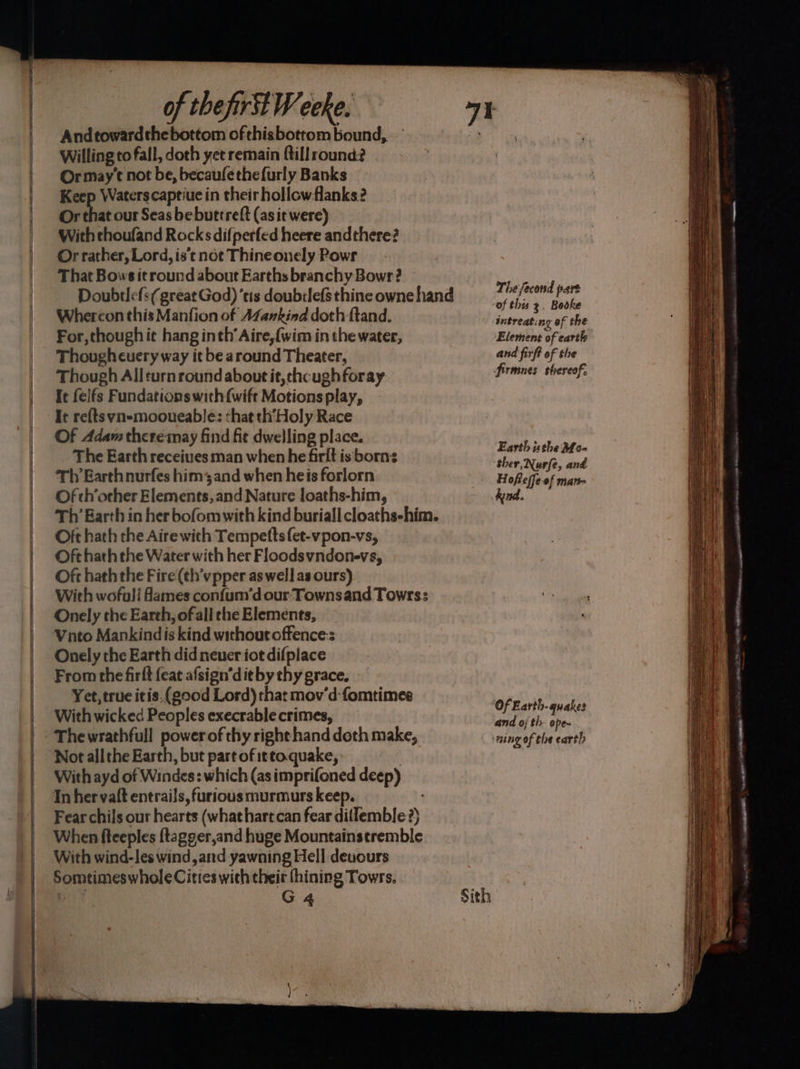 of the firſt Weeke. 71
And toward the bottom of this bottom bound,
Willing to fall, doth yet remain ſtill round?
Or may't not be, becauſe the ſurly Banks
Keep Waters captiue in their hollow flanks?
Or that our Seas be buttreſt (as it were)
With thouſand Rocks diſperſed heere and there?
Or rather, Lord, is't not Thine onely Powr
That Bows it round about Earths branchy Bowr?
Doubtleſs (great God) 'tis doubtleſs thine owne hand
Whereon this Manſion of Mankind doth ſtand.
For, though it hang in th' Aire, ſwim in the water,
Though euery way it be a round Theater,
Though All turn round about it, though for ay
It ſelfs Fundations with ſwift Motions play,
It reſts vn-mooueable: that th' Holy Race
Of Adam there may find fit dwelling place.
The Earth receiues man when he firſt is born:
Th' Earth nurſes him; and when he is forlorn
Of th' other Elements, and Nature loaths-him,
Th' Earth in her boſom with kind buriall cloaths-him.
Oft hath the Aire with Tempeſts ſet-vpon-vs,
Oft hath the Water with her Floods vndon-vs,
Oft hath the Fire (th' vpper as well as ours)
With wofull flames conſum'd our Towns and Towrs:
Onely the Earth, of all the Elements,
Vnto Mankind is kind without offence:
Onely the Earth did neuer iot diſplace
From the firſt ſeat aſsign'd it by thy grace.
Yet, true it is, (good Lord) that mov'd ſomtimes
With wicked Peoples execrable crimes,
The wrathfull power of thy right hand doth make,
Not all the Earth, but part of it to quake,
With ayd of Windes: which (as impriſoned deep)
In her vaſt entrails, furious murmurs keep.
Fear chils our hearts (what hart can fear diſſemble?)
When ſteeples ſtagger, and huge Mountains tremble
With wind-les wind, and yawning Hell deuours
Somtimes whole Cities with their ſhining Towrs.
G 4 Sith
The ſecond part
of this 3. Booke
intreating of the
Element of earth
and firſt of the
firmnes thereof.
Earth is the Mo-
ther, Nurſe, and
Hoſteſſe of man-
kind.
Of Earth-quakes
and of the ope-
ning of the earth